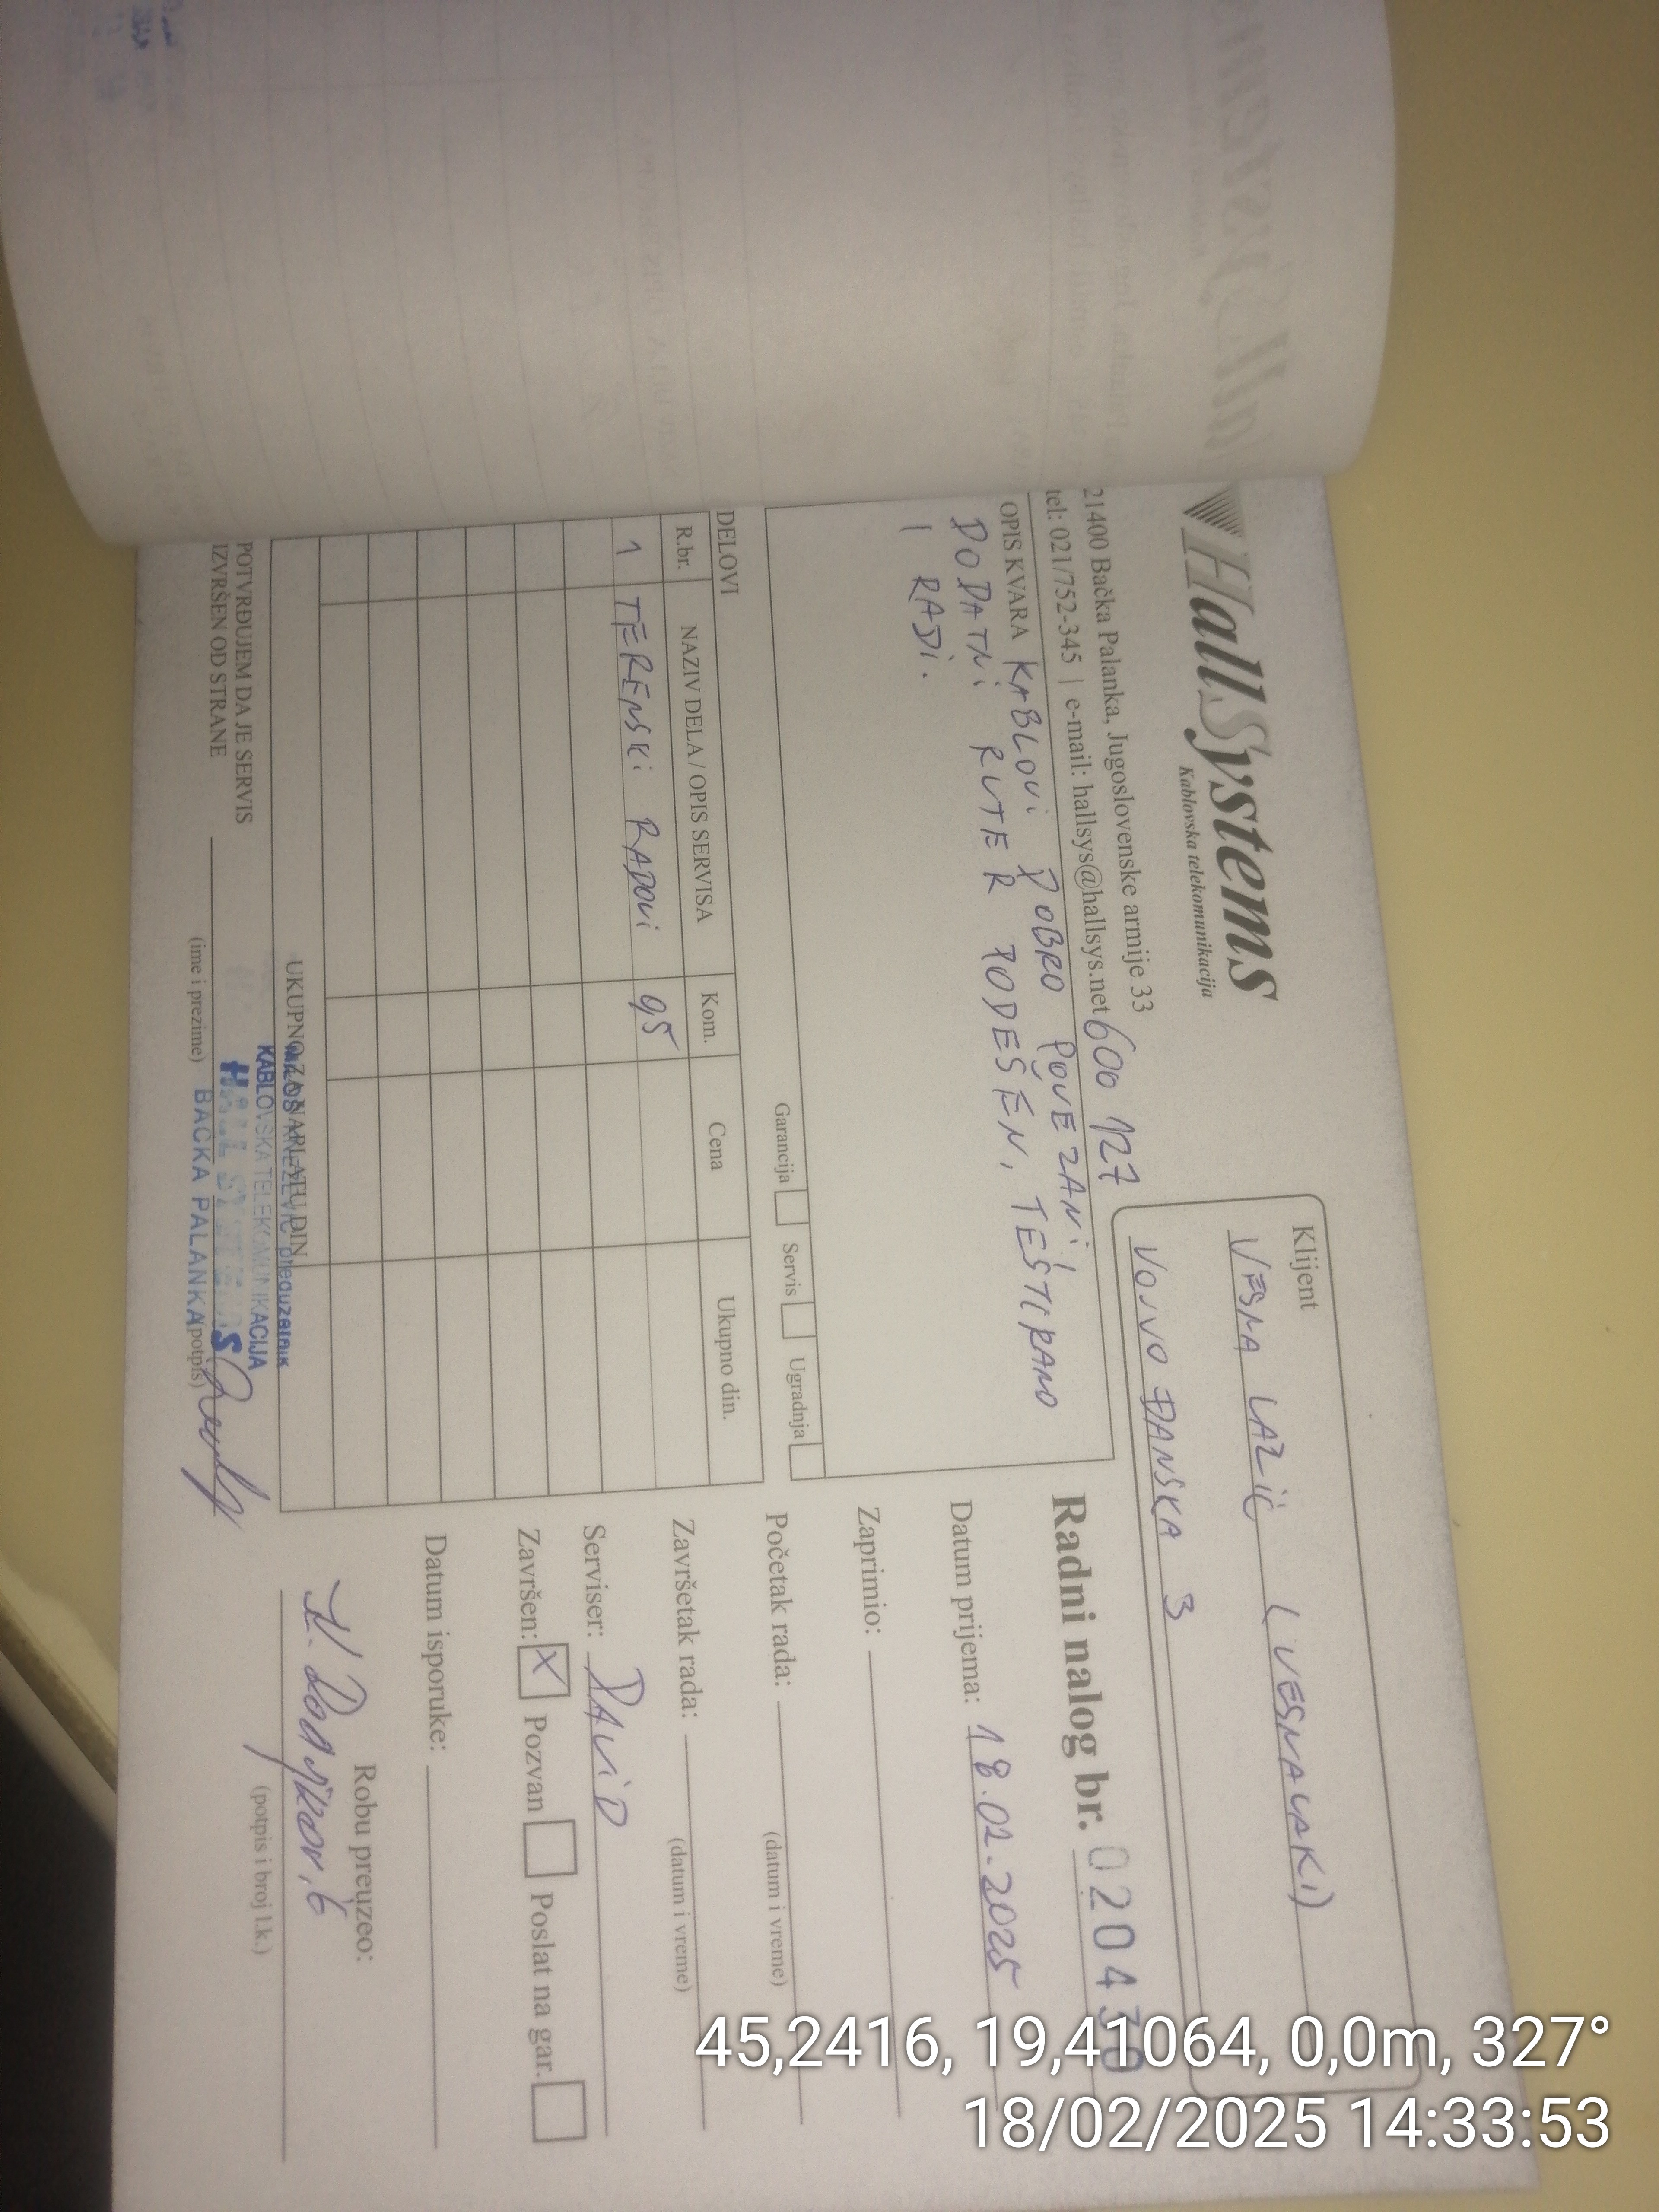 HallSystems
Kablovska telekomunikacija
21400 Bačka Palanka, Jugoslovenske armije 33
tel: 021/752-345 | e-mail: hallsys@hallsys.net
600 127
Klijent
VESNA LAZIĆ (VESNALAKI)
VOJVOĐANSKA 3
OPIS KVARA KABLOVI DOBRO POVEZANI,
DODATNI RUTER PODEŠEN, TESTIRANO
I RADI.
Garancija Servis Ugradnja
Radni nalog br. 020430
Datum prijema: 18.02.2025
Zaprimio:
Početak rada:
(datum i vreme)
Završetak rada:
(datum i vreme)
Serviser: DAVID
Završen: X Pozvan Poslat na gar.
Datum isporuke:
Robu preuzeo:
(potpis i broj l.k.)
DELOVI
R.br. NAZIV DELA / OPIS SERVISA Kom. Cena Ukupno din.
1 TERENSKI RADOVI 95
UKUPNO ZA NAPLATU DIN
POTVRĐUJEM DA JE SERVIS
IZVRŠEN OD STRANE
(ime i prezime) (potpis)
MILOŠ KNEŽEVIĆ preduzetnik
KABLOVSKA TELEKOMUNIKACIJA
HALL SYSTEMS
BAČKA PALANKA
45,2416, 19,41064, 0,0m, 327°
18/02/2025 14:33:53